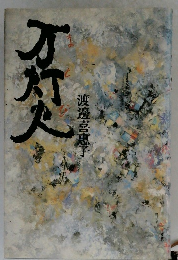 万灯火
渡邊喜恵子